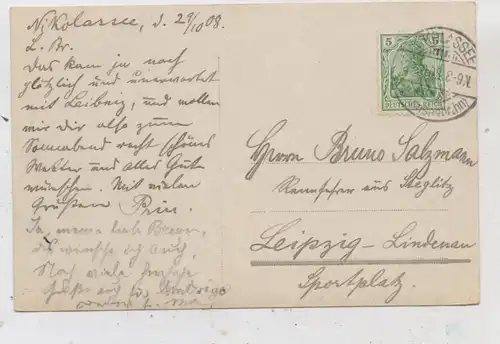 Nikolassee, d. 29/10 08.
L. Br.
Das kam ja noch
plötzlich und unerwartet
mit Leibzig, und wollen
wir dir also zum
Sonnabend recht schönes
Wetter und alles Gute
wünschen. Mit vielen
Grüßen
Ja, meine liebe
wünsche ich auch
Noch viele
Grüße
5
DEUTSCHES REICH
NIKOLASSEE
8-9 N.
(WANNSEEBAHN)
Herrn Bruno Salzmann
Rennfahrer aus Steglitz
Leipzig-Lindenau
Sportplatz.